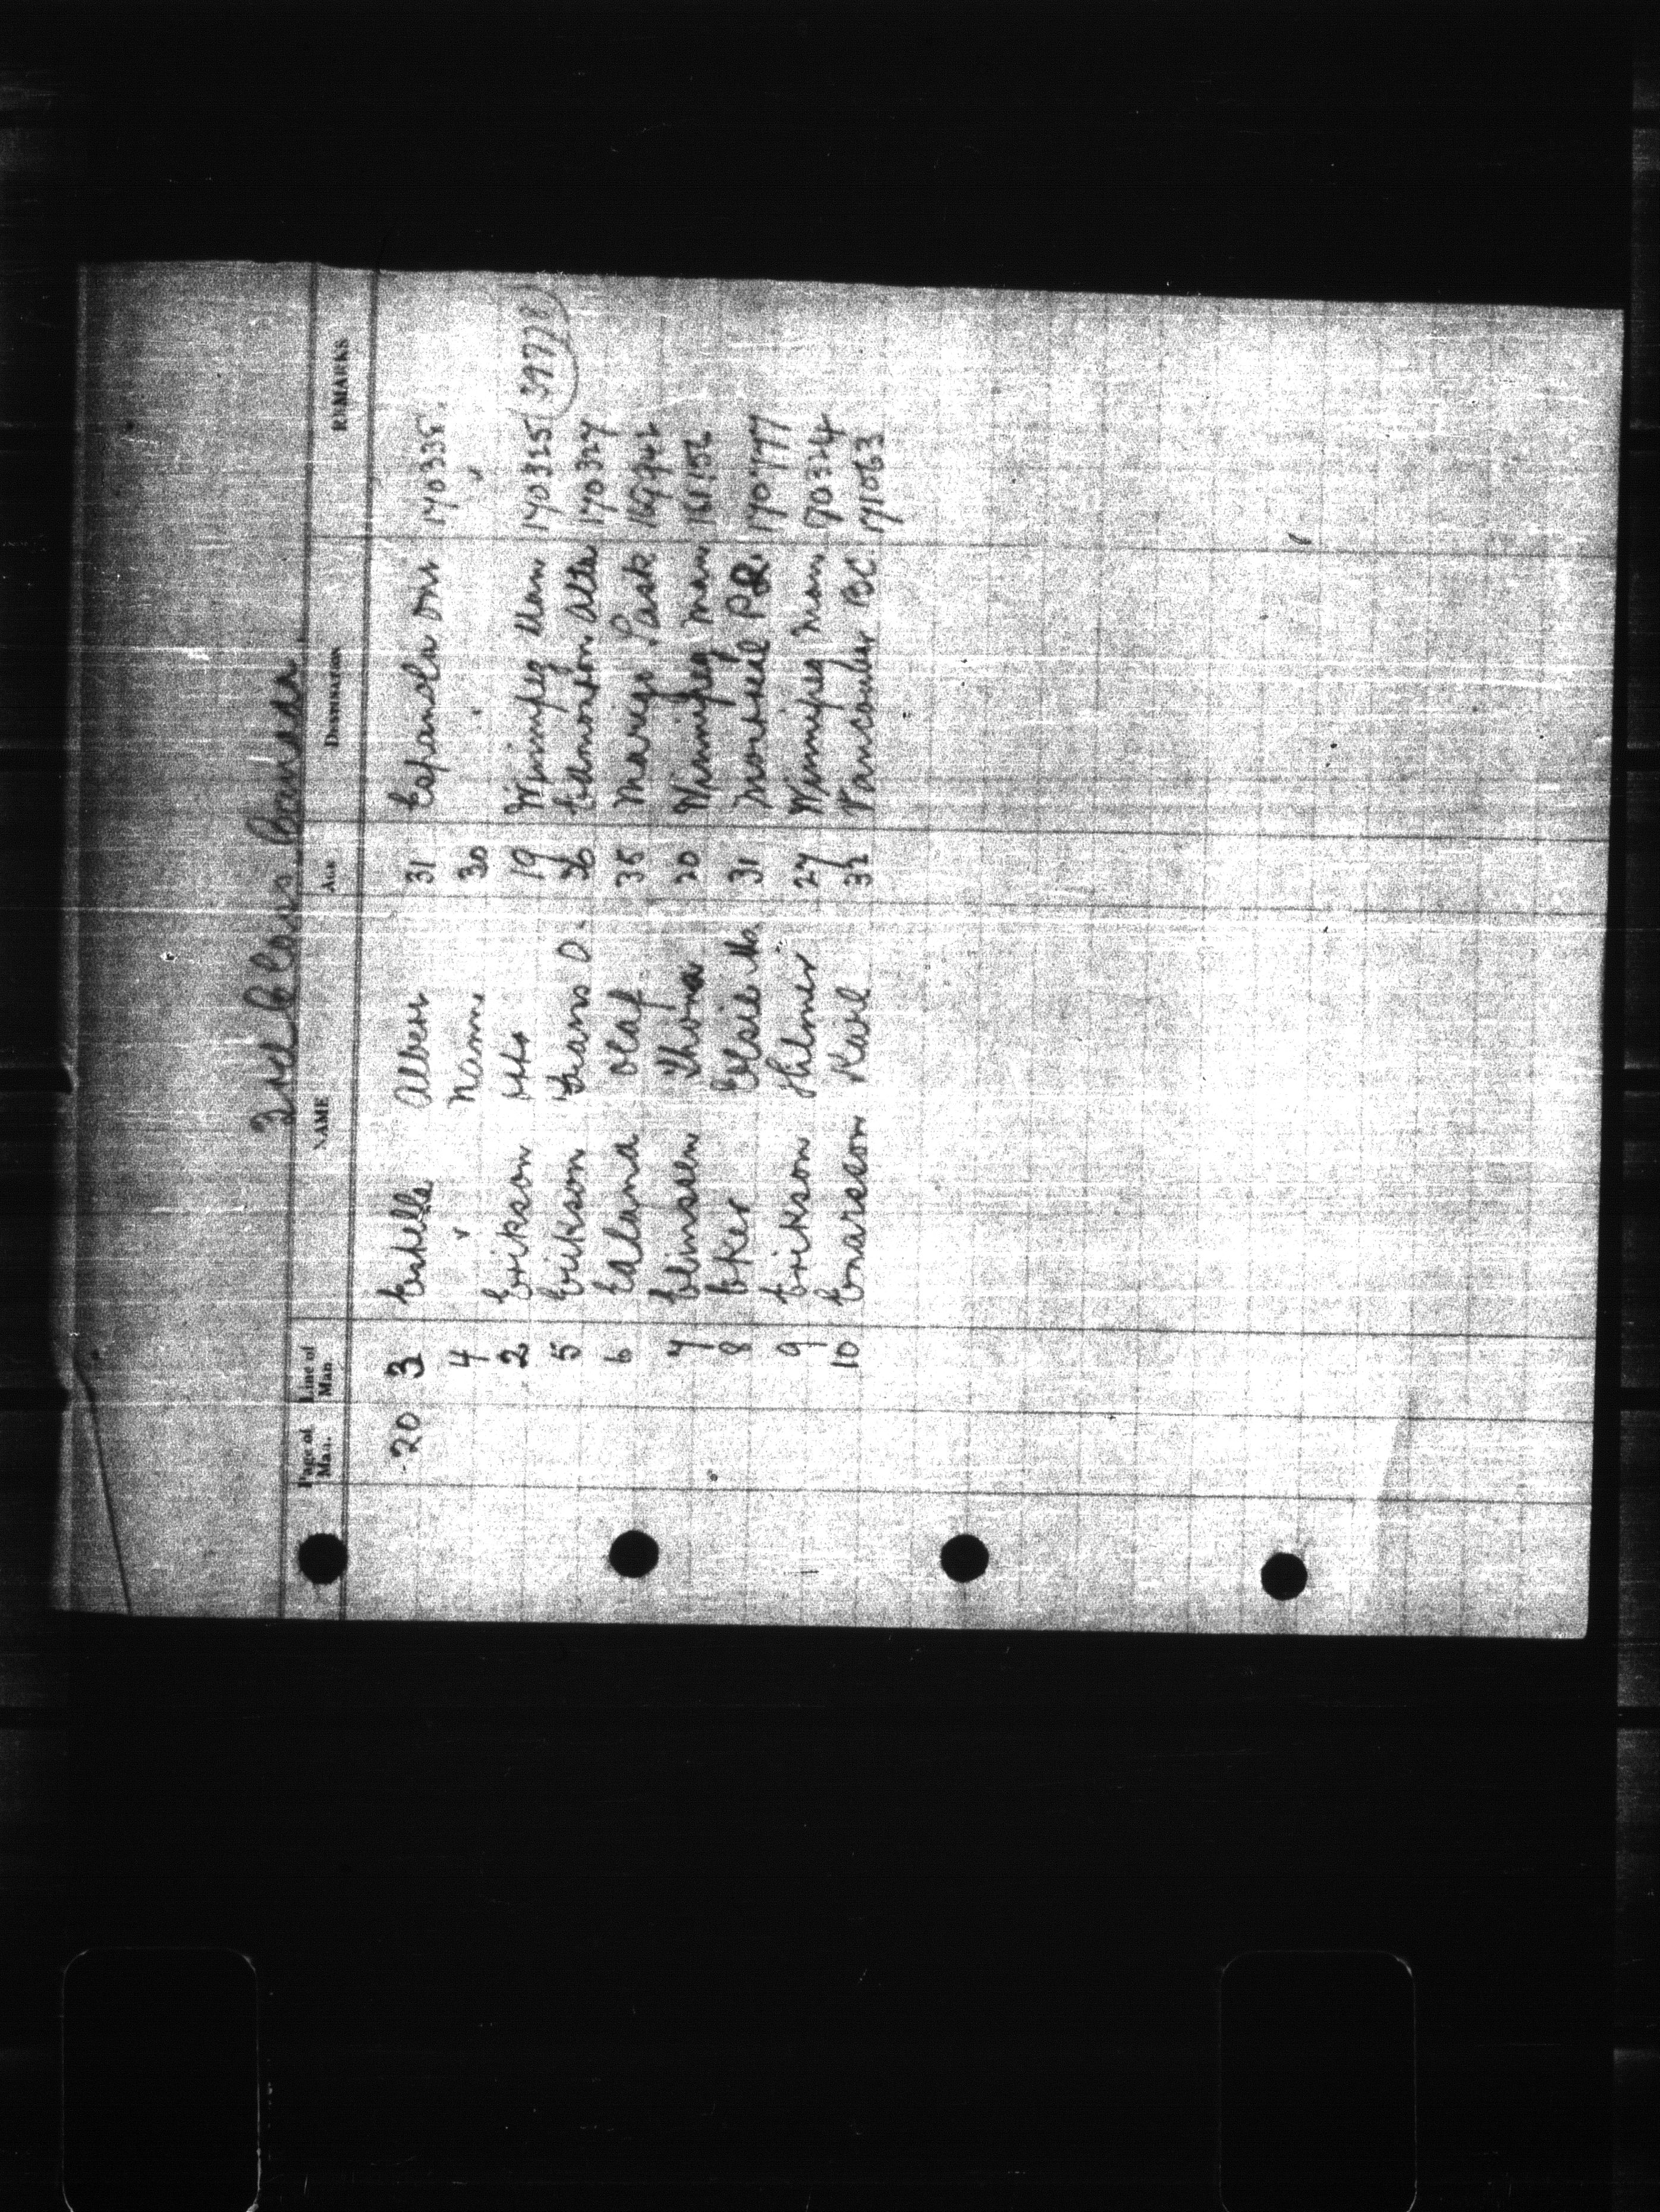 3rd Class Canada
Page of Man. Line of Man NAME AGE DESTINATION REMARKS
20 3 Albert 31 Espanola Ont 170335
4 " Nanni 30 " "
2 Erikson 19 Winnipeg Man 170325
5 Erikson Frans O. 26 Edmonton Alta 170327
6 Ealand Olaf 35 Marieyo Sask
7 Elinssen Thora 20 Winnipeg Man 161156
8 Eker 31 Montreal P.Q. 170777
9 Erikson Hilmer 27 Winnipeg Man 170324
10 Enarsson Karl 32 Vancouver BC 171063